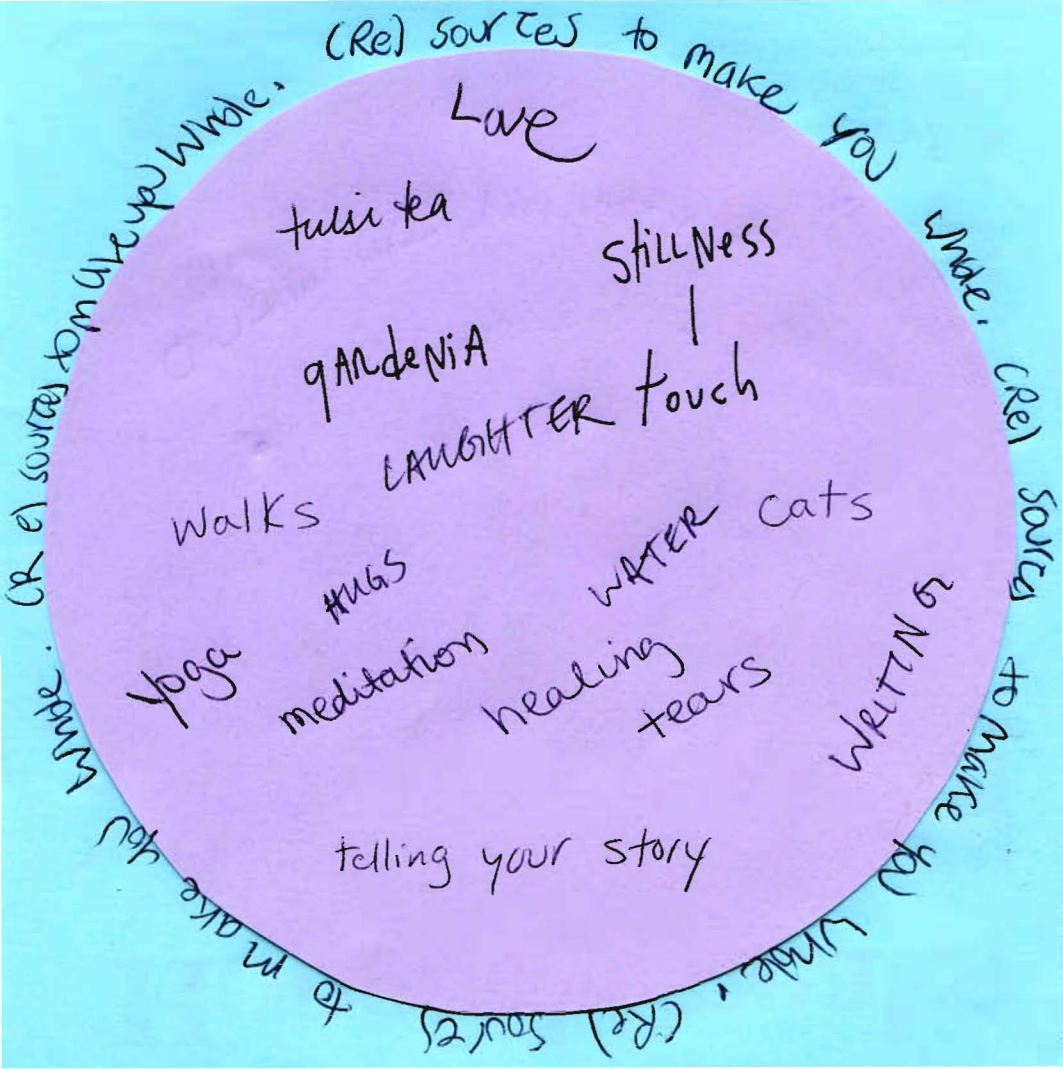 (Re) sources to make you whole. (Re) sources to make you whole. (Re) sources to make you whole. (Re) sources to make you whole.
Love
tulsi tea
StiLLNess
gARdeNiA
touch
LAUGHTER
Walks
cats
WATER
HUGS
yoga
meditation
healing
tears
WRITING
telling your story